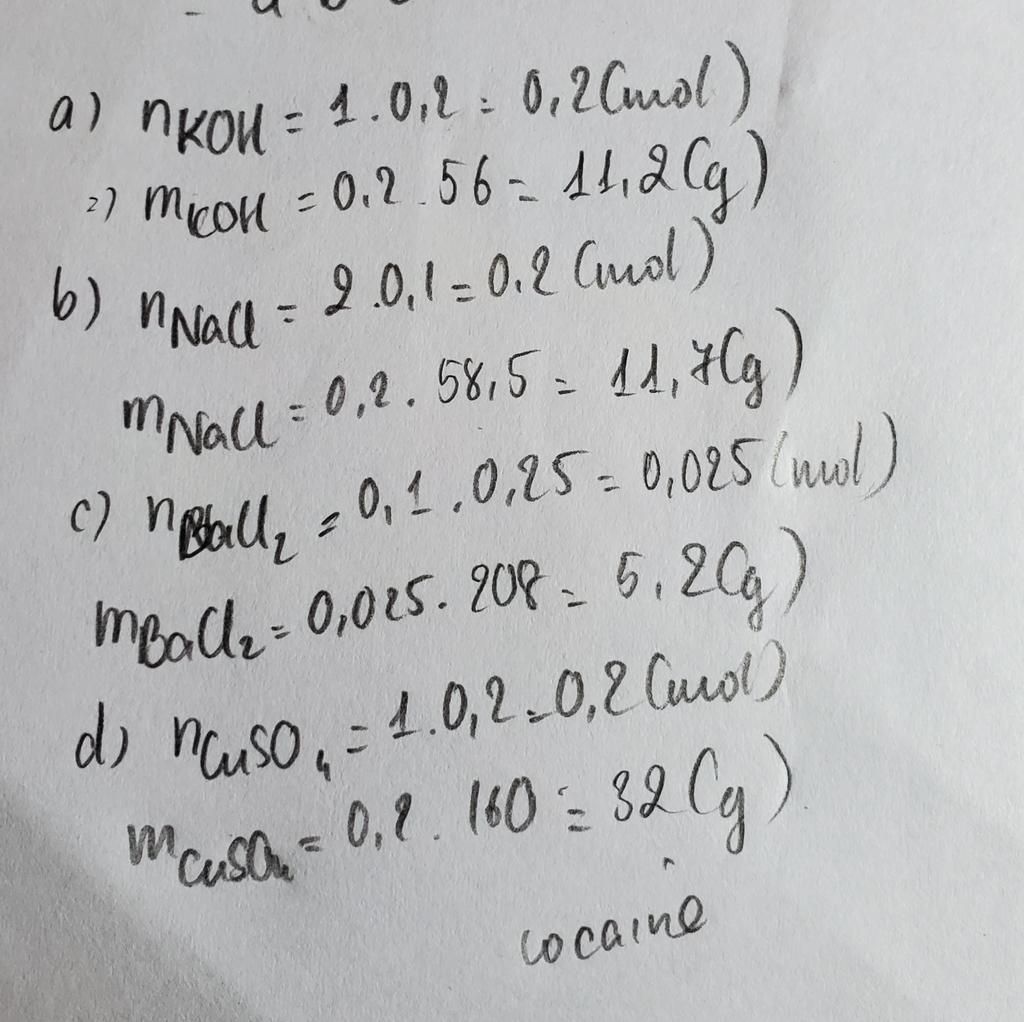 a) nKOH = 1.0,2 = 0,2 (mol)
=) mKOH = 0,2.56 = 11,2 (g)
b) nNaCl = 2.0,1 = 0,2 (mol)
mNaCl = 0,2.58,5 = 11,7 (g)
c) nBaCl2 = 0,1.0,25 = 0,025 (mol)
mBaCl2 = 0,025.208 = 5,2 (g)
d) nCuSO4 = 1.0,2 = 0,2 (mol)
mCuSO4 = 0,2.160 = 32 (g)
cocaine